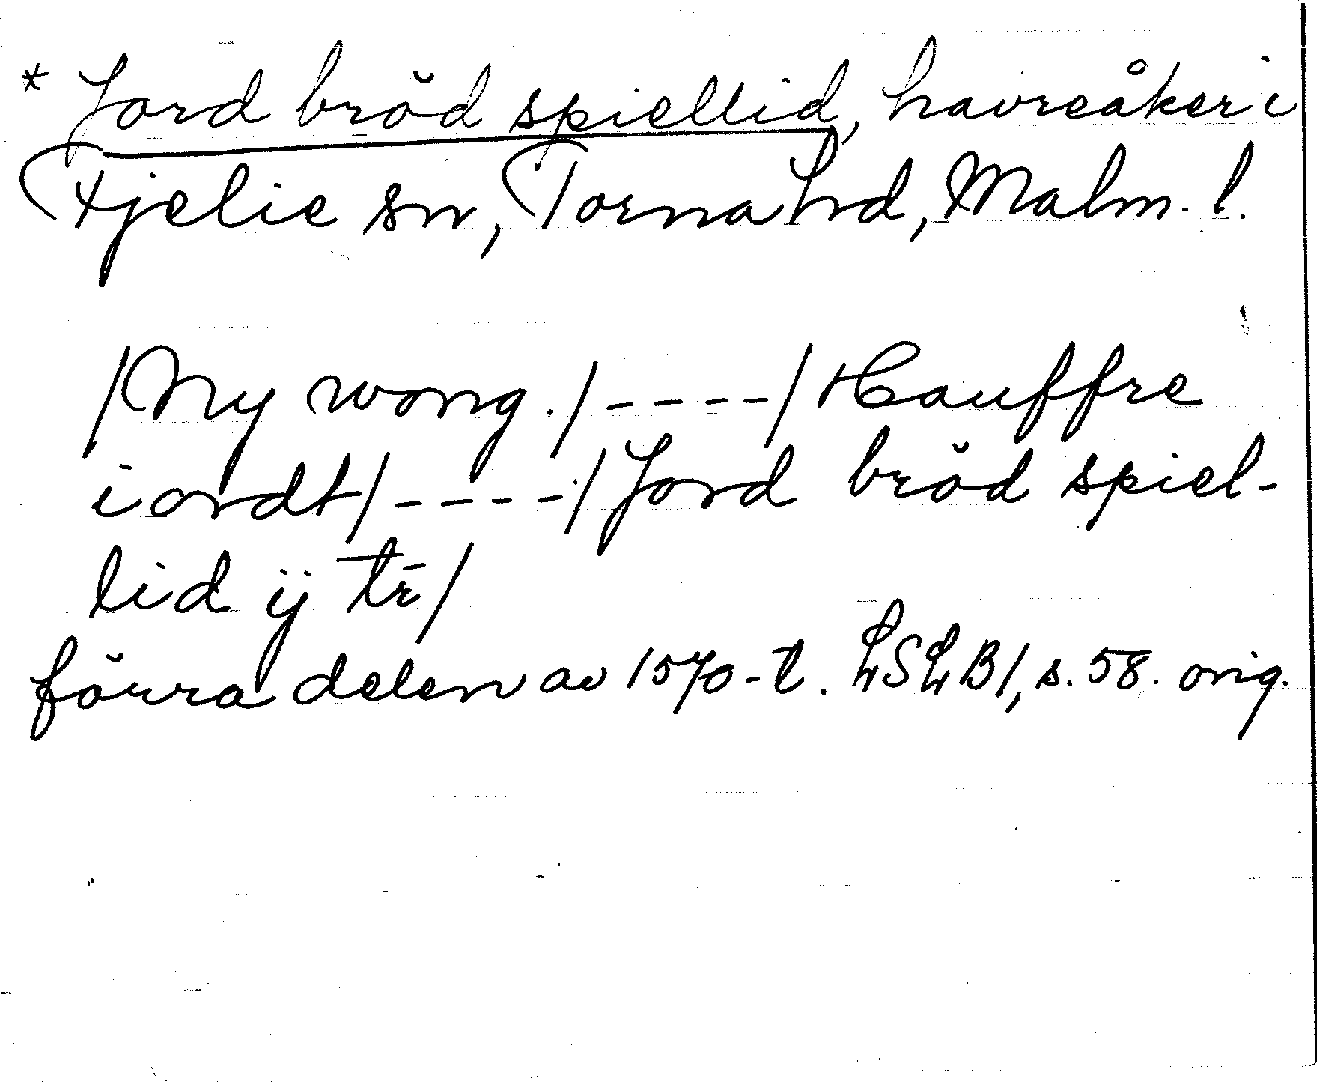 * Jord bröd spiellid, havreåker i
Fjelie sn, Torna hd, Malm. l.
/Ny wong./----/Hauffre
iordt/----/Jord bröd spiel-
lid ij tr̄/
förra delen av 1570-t. LSLB1, s. 58. orig.